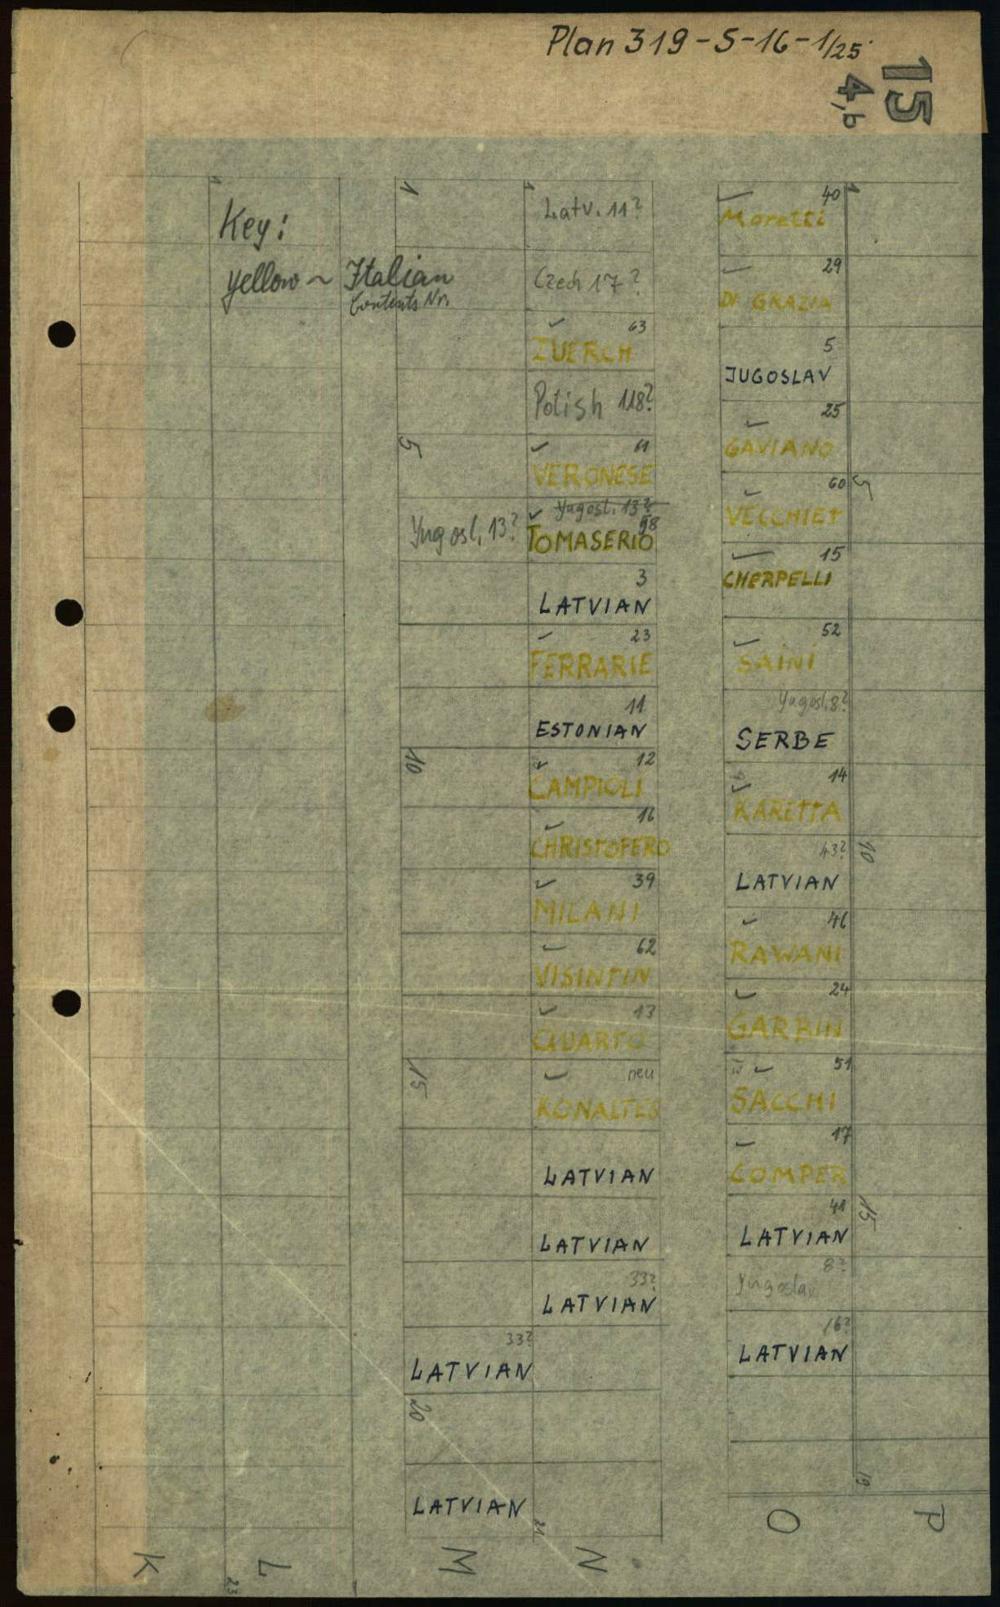 Plan 319-S-16-1/25
15
4,b
Key:
yellow ~ Italian
Contents Nr.
1
5
Yugosl. 13?
10
15
33?
LATVIAN
20
LATVIAN
1
Latv. 11?
Czech 17?
63
ZUERCH
Polish 118?
61
VERONESE
Yugosl. 13?
58
TOMASERIO
3
LATVIAN
23
FERRARIE
11
ESTONIAN
12
CAMPIOLI
16
CHRISTOFERO
39
MILANI
62
VISINTIN
13
QUARTO
neu
KONALTES
LATVIAN
LATVIAN
33?
LATVIAN
21
40
Moretti
29
DI GRAZIA
5
JUGOSLAV
25
GAVIANO
60
VECCHIET
15
CHERPELLI
52
SAINI
Yugosl. 8?
SERBE
14
KARETTA
43?
LATVIAN
46
RAWANI
24
GARBIN
51
SACCHI
17
COMPER
41
LATVIAN
8?
Yugoslav
16?
LATVIAN
1
5
10
15
19
K
L
23
M
N
O
P